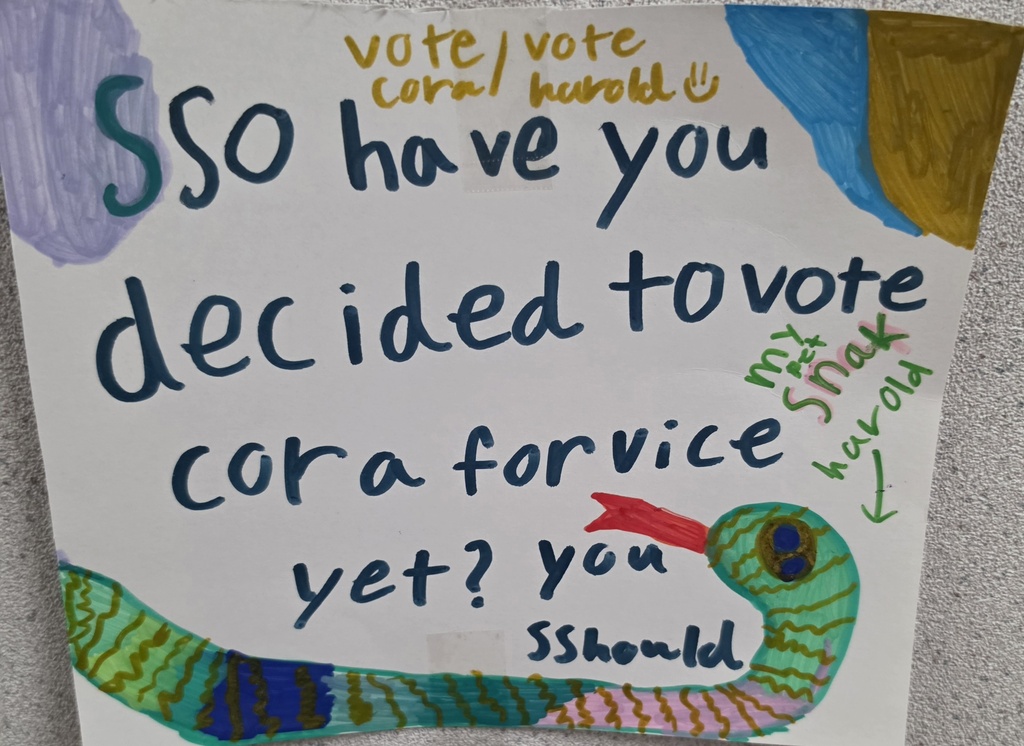 vote / vote
cora / harold
SSO have you
decided to vote
my
pet
snak
harold
cora for vice
yet? you
SShould